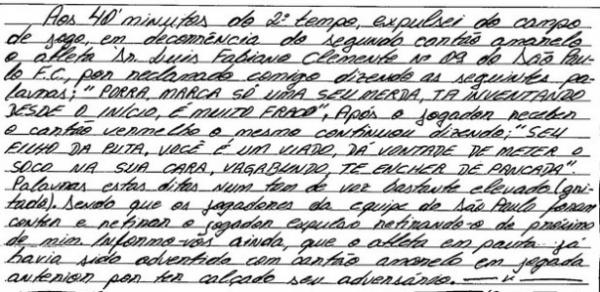 Aos 40' minutos do 2º tempo, expulsei do campo
de jogo, em decorrência do segundo cartão amarelo
o atleta Sr. Luis Fabiano Clemente nº 09 do São Pau-
lo F.C., por reclamado comigo dizendo as seguintes pa-
lavras; "PORRA, MARCA SÓ UMA SEU MERDA, TA INVENTANDO
DESDE O INÍCIO, É MUITO FRACO", Após o jogador receber
o cartão vermelho o mesmo continuou dizendo; "SEU
FILHO DA PUTA, VOCÊ É UM VIADO, DÁ VONTADE DE METER O
SOCO NA SUA CARA, VAGABUNDO, TE ENCHER DE PANCADA".
Palavras estas ditas num tom de voz bastante elevado (gri-
tado). Sendo que os jogadores da equipe do São Paulo foram
conter e retirar o jogador expulso retirando-o de próximo
de mim. Informo-vos ainda, que o atleta em pauta já
havia sido advertido com cartão amarelo em jogada
anterior por ter calçado seu adversário.